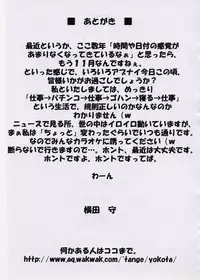 ■ あとがき ■
最近というか、ここ数年「時間や日付の感覚が
あまりなくなってきているなぁ」と思ったら、
もう11月なんですねぇ。
といった感じで、いろいろアブナイ今日この頃、
皆様いかがお過ごしでしょうか?
私といたしましては、めっきり
「仕事→パチンコ→仕事→ゴハン→寝る→仕事」
という生活で、規則正しいのかなんなのか
わかりません（w
ニュースで見る所、世の中はイロイロ動いていますが、
まぁ私は「ちょっと」変わったぐらいでいつも通りです。
なのでみんなカラオケに誘ってください（w
断らないで行きますので…、ホント、最近は大丈夫です。
ホントですよ、ホントですってば。
わーん
横田 守
何かある人はココまで。
http://www.aq.wakwak.com/~tange/yokota/